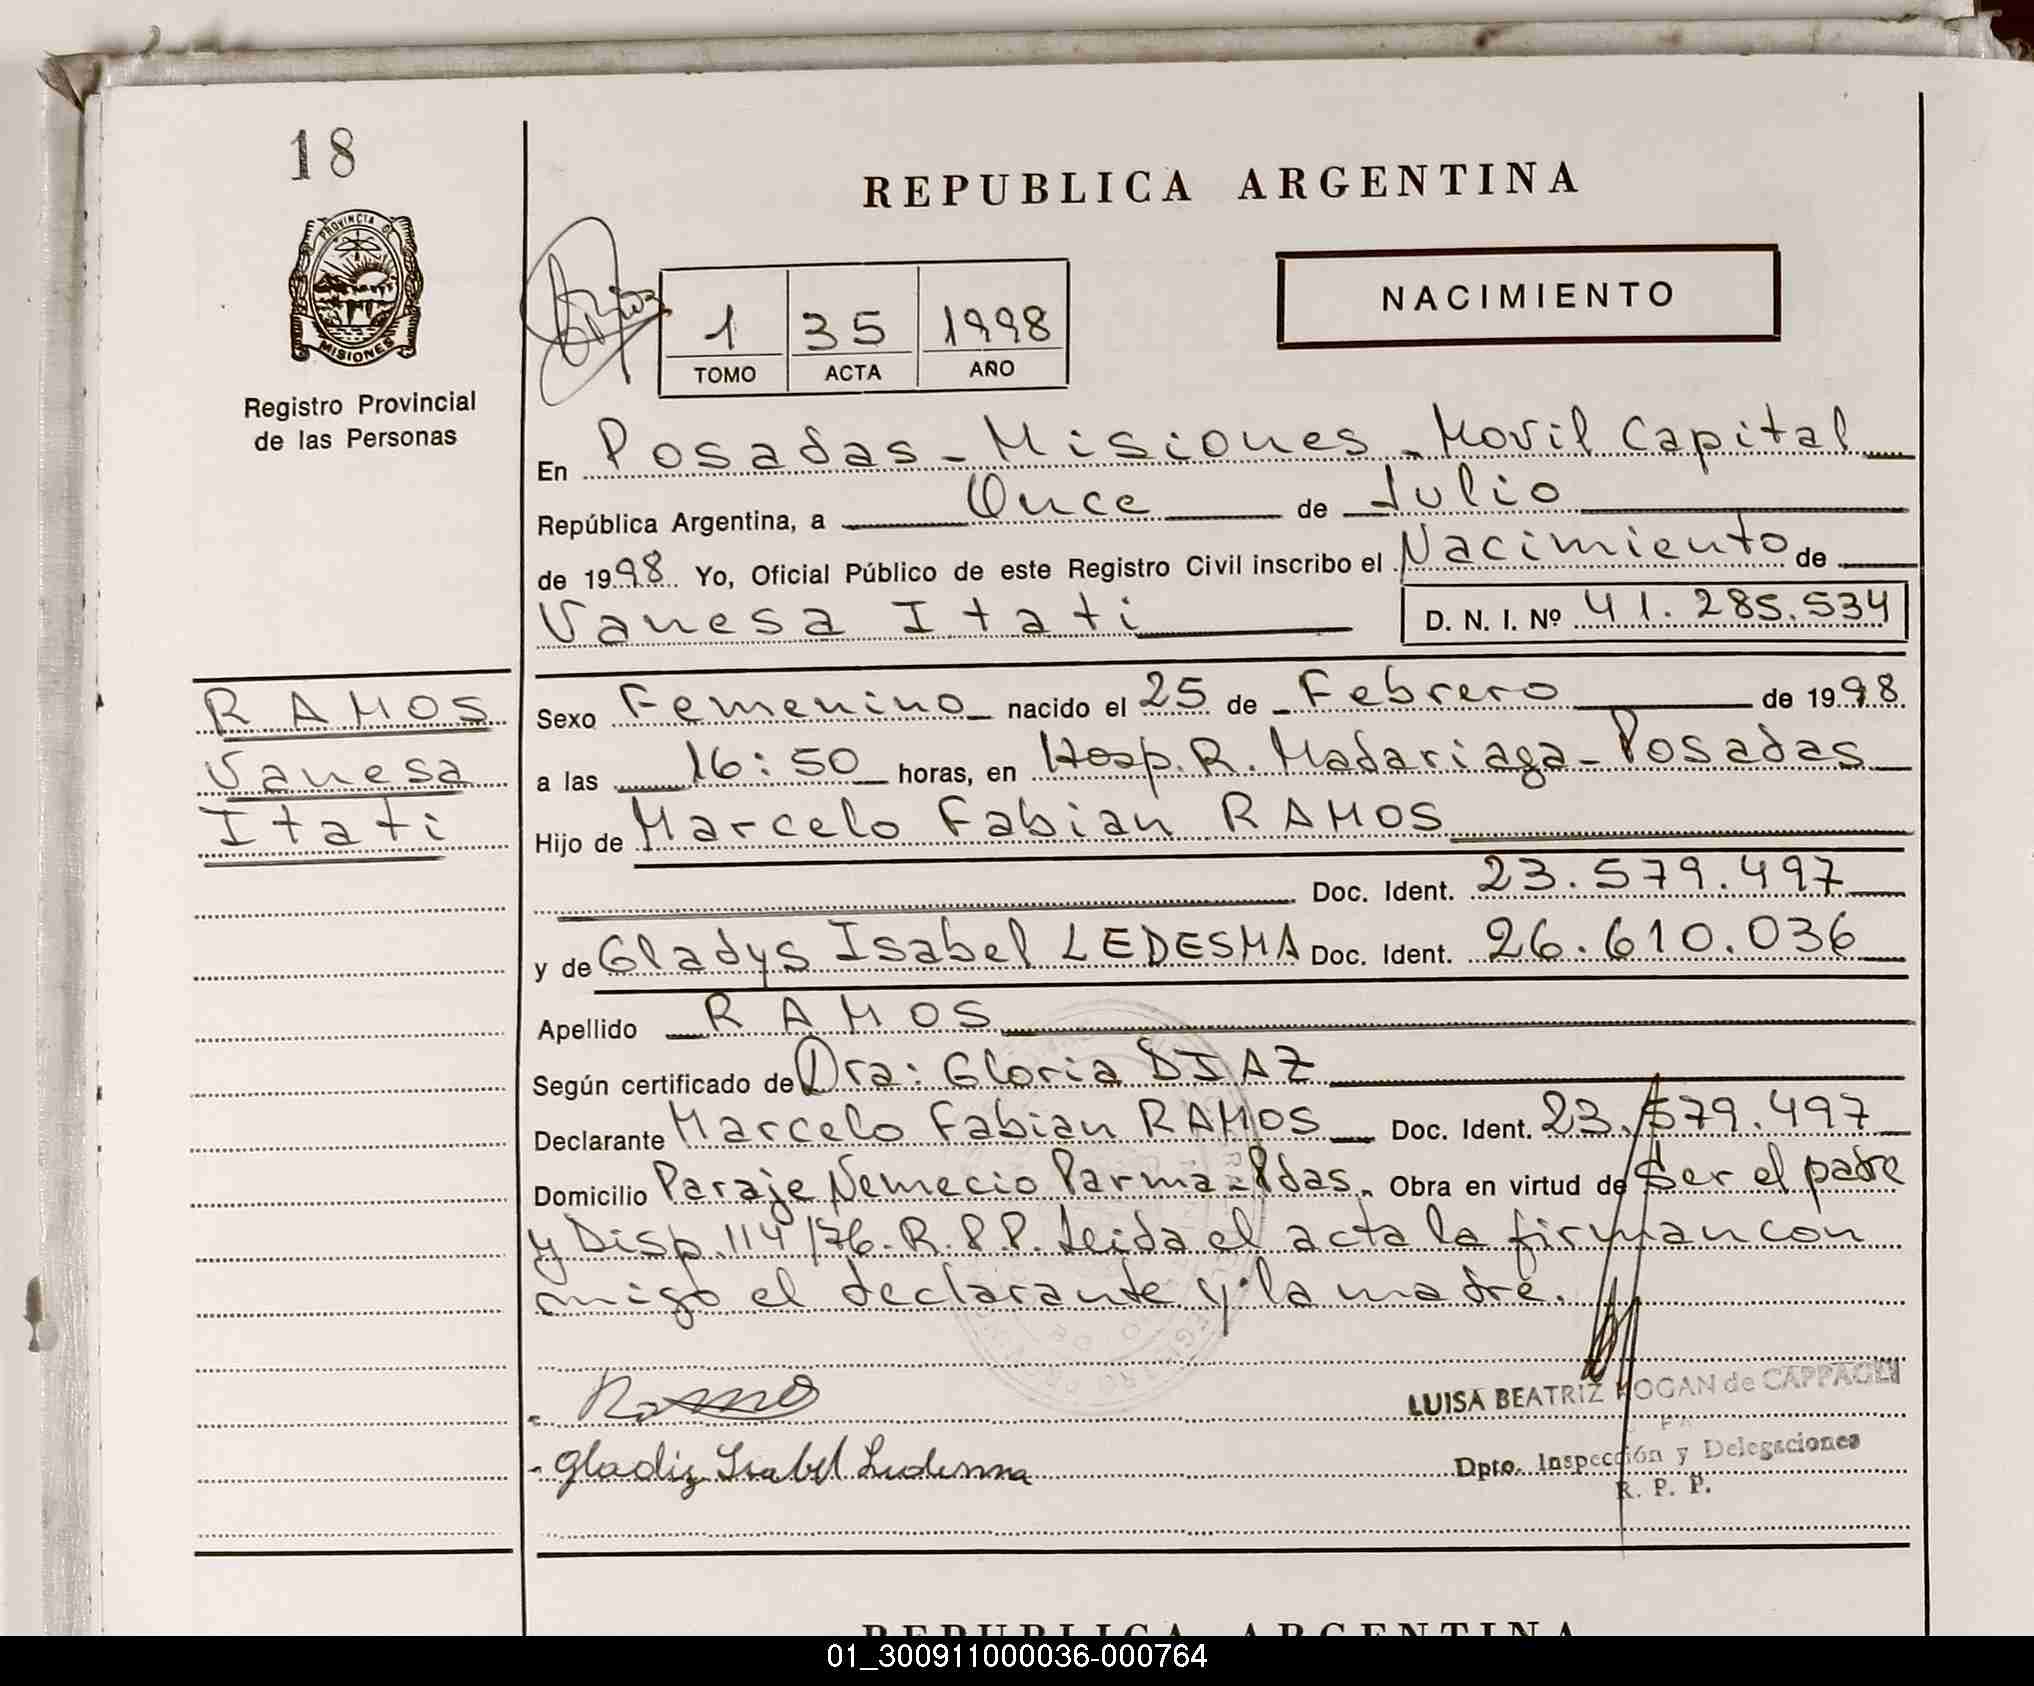 18
REPUBLICA ARGENTINA
PROVINCIA D
MISIONES
Registro Provincial
de las Personas
NACIMIENTO
1 35 1998
TOMO ACTA AÑO
En Posadas - Misiones - Movil Capital
República Argentina, a Once de Julio
de 1998 Yo, Oficial Público de este Registro Civil inscribo el Nacimiento de
Vanesa Itati D. N. I. Nº 41.285.534
RAMOS
Vanesa
Itati
Sexo Femenino nacido el 25 de Febrero de 1998
a las 16:50 horas, en Hosp. R. Madariaga - Posadas
Hijo de Marcelo Fabian RAMOS
Doc. Ident. 23.579.497
y de Gladys Isabel LEDESMA Doc. Ident. 26.610.036
Apellido RAMOS
Según certificado de Dra: Gloria DIAZ
Declarante Marcelo Fabian RAMOS Doc. Ident. 23.579.497
Domicilio Paraje Nemecio Parma - Pdas. Obra en virtud de Ser el padre
y Disp. 114/76. R.P.P. Leida el acta la firman con
migo el declarante y la madre.
Ramos
Gladiz Isabel Ledesma
LUISA BEATRIZ HOGAN de CAPPAGLI
Dpto. Inspección y Delegaciones
R. P. P.
REPUBLICA ARGENTINA
01_300911000036-000764